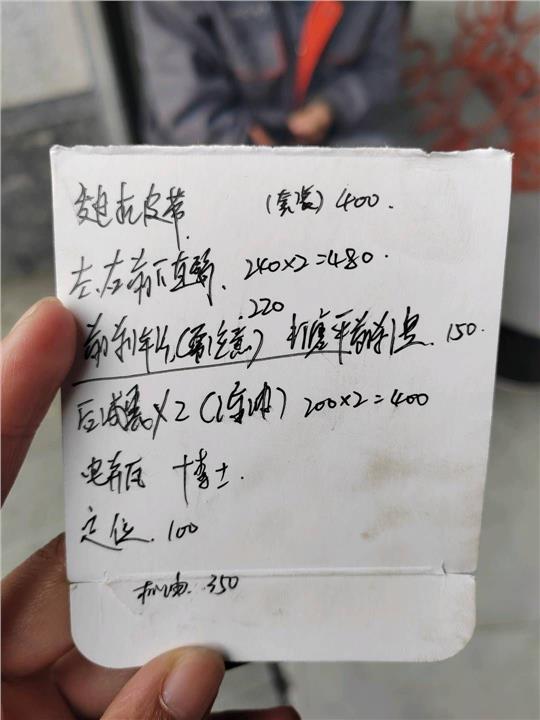 发电机皮带 (套装) 400.
左、右前下直臂. 240×2=480.
.220
前刹车片(需注意) 打磨平前刹 150.
后减震×2 (渗油) 200×2=400
电瓶 博士.
定位. 100
机油. 350